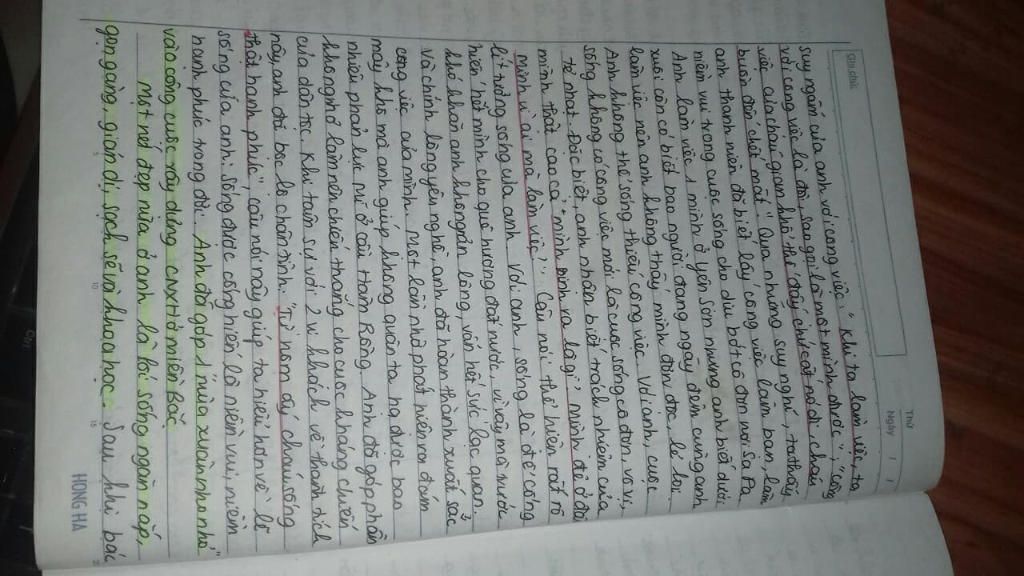 Thứ
Ngày
Ghi chú:
suy ngẫm của anh với công việc: "Khi ta làm việc, ta
với công việc là đôi, sao gọi là một mình được", "công
việc của cháu gian khổ thế đấy chứ cất nó đi, cháu
buồn đến chết mất". Qua những suy nghĩ, ta thấy
anh thanh niên đã biết lấy công việc làm bạn, làm
niềm vui trong cuộc sống cho dù bớt cô đơn nơi Sa Pa.
Anh làm việc 1 mình ở Yên Sơn nhưng anh biết dưới
xuôi còn có biết bao người đang ngày đêm cùng anh
làm việc nên anh không thấy mình đơn độc, lẻ loi
Anh không thể sống thiếu công việc. Với anh, cuộc
sống không có công việc mới là cuộc sống cô đơn, vô vị,
tẻ nhạt. Đặc biệt, anh nhận biết trách nhiệm của
mình thật cao cả "mình sinh ra là gì, mình đẻ ở đâu
mình vì ai mà làm việc?". Câu nói thể hiện rất rõ
lí tưởng sống của anh. Với anh, sống là để cống
hiến hết mình cho quê hương đất nước, vì vậy mà dù
khó khăn anh không nản lòng, vẫn hết sức lạc quan.
Và chính lòng yêu nghề, anh đã hoàn thành xuất sắc
công việc của mình. Một lần nhờ phát hiện ra đám
mây khô mà anh giúp không quân ta hạ được bao
nhiêu phản lực mĩ ở cầu Hàm Rồng. Anh đã góp phần
không nhỏ làm nên chiến thắng cho cuộc kháng chiến
của dân tộc. Khi tâm sự với 2 vị khách về thành tích
này, anh đã bộc lộ chân tình: "Từ hôm ấy cháu sống
thật hạnh phúc". câu nói này giúp ta hiểu hơn về lẽ
sống của anh: sống được cống hiến là niềm vui, niềm
hạnh phúc trong đời. Anh đã góp 1 "mùa xuân nho nhỏ"
vào công cuộc xây dựng CNXH ở miền Bắc
Một nét đẹp nữa ở anh là lối sống ngăn nắp,
gọn gàng, giản dị, sạch sẽ và khoa học. Sau khi bác
HỒNG HÀ